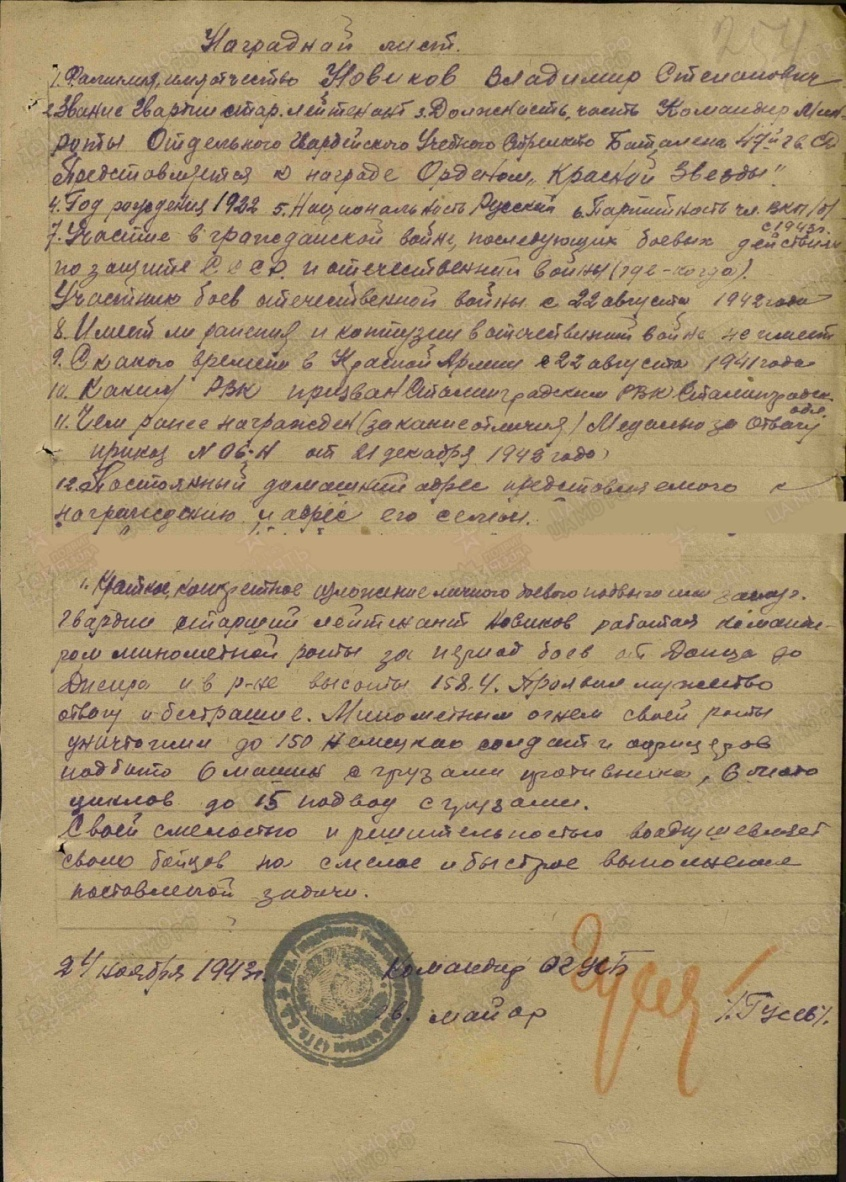 254
Наградной лист.
1. Фамилия, имя отчество Новиков Владимир Степанович
2. Звание Гвардии стар. лейтенант 3. Должность, часть Командир Мин
роты Отдельного Гвардейского Учебного Стрелкого Баталена 47й гв СД
Представляется к награде Орденом „Красной Звезды"
4. Год рождения 1922 5. Национальность Русский 6. Партийность чл. ВКП/б/
с 1943г.
7. Участие в гражданской войне, последующих боевых действиях
по защите СССР. и отечественной войны (где-когда).
Участник боев отечественной войны с 22 августа 1942 года
8. Имеет ли ранения и контузии в отечественной войне не имеет
9. С какого времени в Красной Армии с 22 августа 1941 года
10. Каким РВК призван Сталинградским РВК Сталинградск.
обл.
11. Чем ранее награжден (за какие отличия) Медалью за Отвагу
приказ N 06-Н от 21 декабря 1942 года
12. Постоянный домашний адрес представляемого к
награждению и адрес его семьи.
1. Краткое, конкретное изложение личного боевого подвига или заслуг.
Гвардии старший лейтенант Новиков работая команди-
ром минометной роты за период боев от Донца до
Днепра и в р-не высоты 158.4. Проявил мужество
отвагу и бестрашие. Минометным огнем своей роты
уничтожил до 150 немецких солдат и офицеров
подбито 6 машин с грузами противника, 6 мото
циклов до 15 подвод с грузами.
Своей смелостью и решительностью воодушевляет
своих бойцов на смелое и быстрое выполнение
поставленой задачи.
24 ноября 1943г.
Командир ОГУСБ
гв. майор /Гусев/.